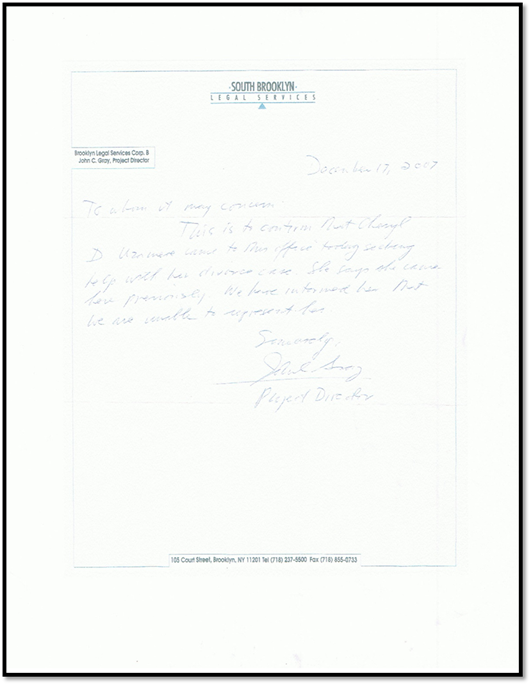 ·SOUTH BROOKLYN·
LEGAL SERVICES
Brooklyn Legal Services Corp. B
John C. Gray, Project Director
December 17, 2007
To whom it may concern.
This is to confirm that Cheryl
D. came to this office today seeking
help with her divorce case. She says she came
here previously. We have informed her that
we are unable to represent her
Sincerely,
Project Director
105 Court Street, Brooklyn, NY 11201 Tel (718) 237-5500 Fax (718) 855-0733